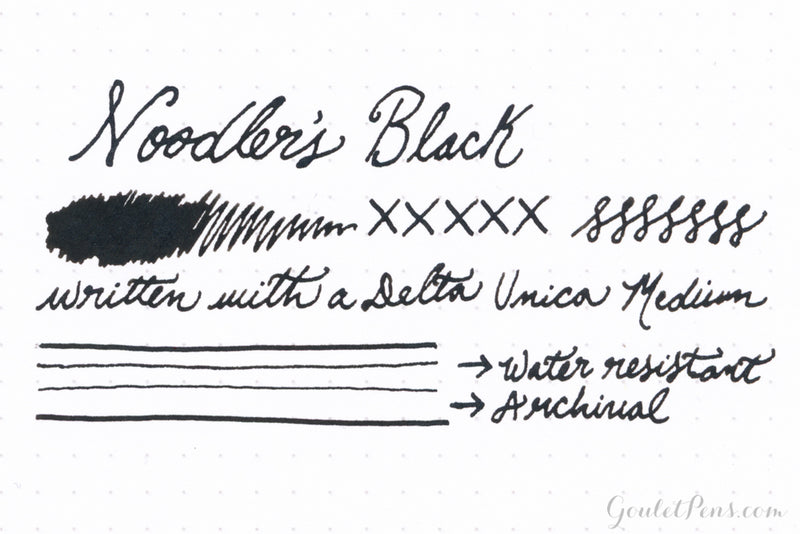 Noodler's Black
XXXXX sssssss
written with a Delta Unica Medium
→ Water resistant
→ Archival
GouletPens.com